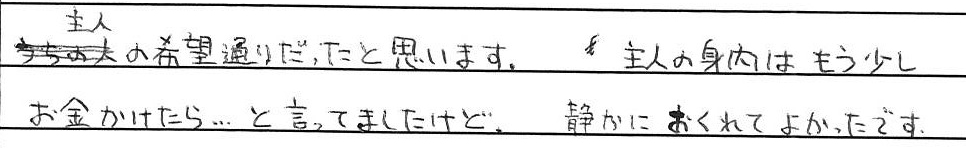 主人
うちの人の希望通りだったと思います。 主人の身内はもう少し
お金かけたら…と言ってましたけど。 静かにおくれてよかったです。